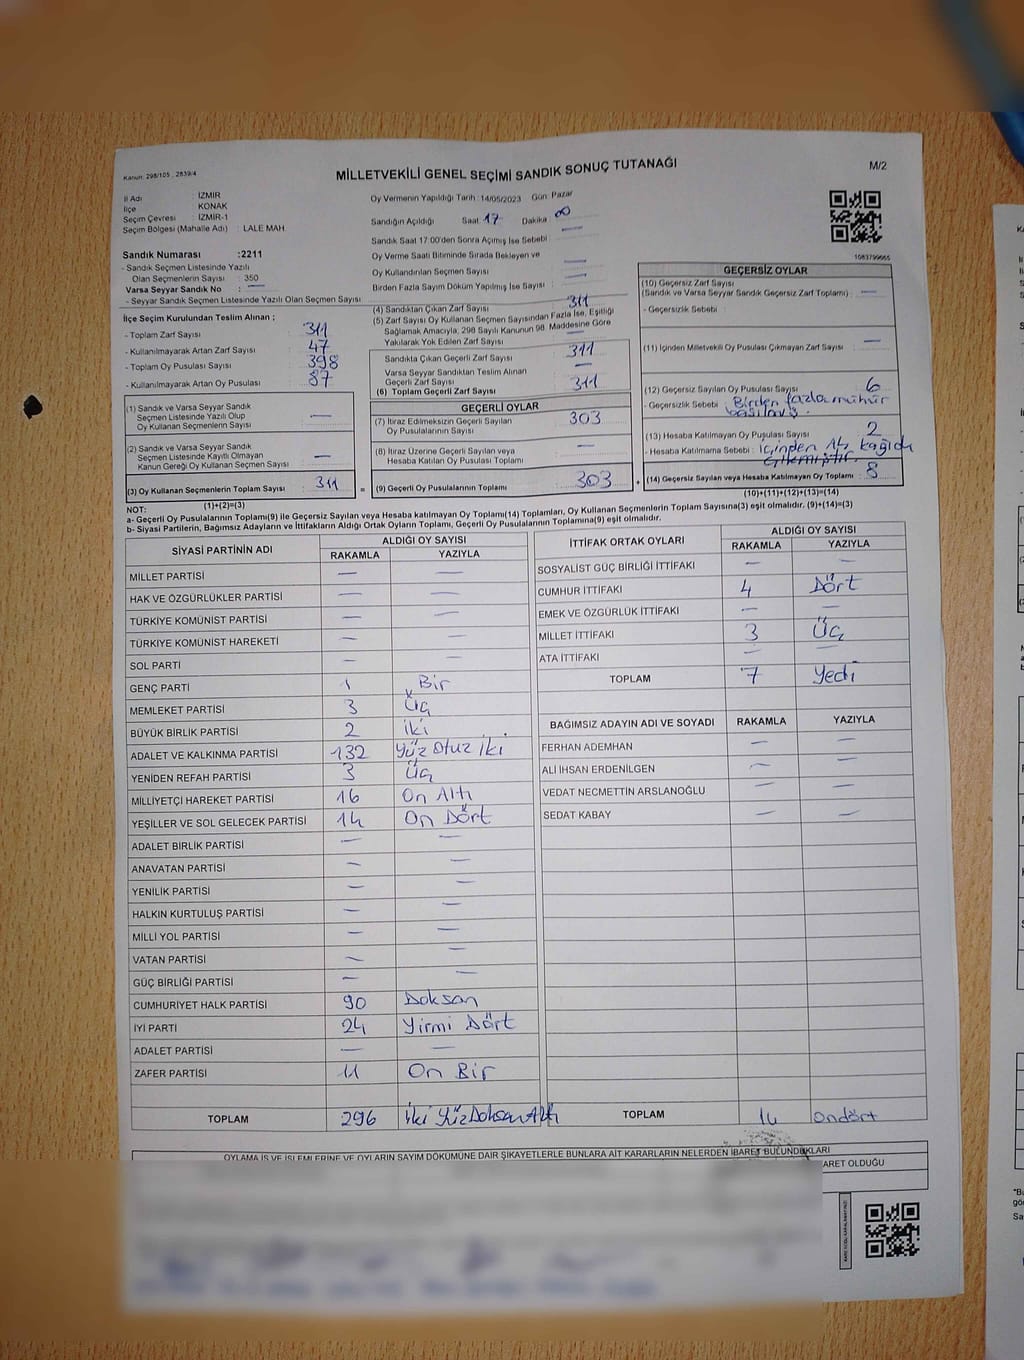 Kanun: 298/105 , 2839/4
MİLLETVEKİLİ GENEL SEÇİMİ SANDIK SONUÇ TUTANAĞI
M/2
İl Adı : İZMİR
İlçe : KONAK
Seçim Çevresi : İZMİR-1
Seçim Bölgesi (Mahalle Adı) : LALE MAH.
Oy Vermenin Yapıldığı Tarih : 14/05/2023 Gün: Pazar
Sandığın Açıldığı Saat: 17 Dakika 00
Sandık Saat 17:00'den Sonra Açılmış İse Sebebi : —
Oy Verme Saati Bitiminde Sırada Bekleyen ve
Oy Kullandırılan Seçmen Sayısı : —
Birden Fazla Sayım Döküm Yapılmış İse Sayısı : —
1083799665
Sandık Numarası :2211
- Sandık Seçmen Listesinde Yazılı
Olan Seçmenlerin Sayısı : 350
Varsa Seyyar Sandık No : —
- Seyyar Sandık Seçmen Listesinde Yazılı Olan Seçmen Sayısı
İlçe Seçim Kurulundan Teslim Alınan ;
- Toplam Zarf Sayısı : 311
- Kullanılmayarak Artan Zarf Sayısı : 47
- Toplam Oy Pusulası Sayısı : 398
- Kullanılmayarak Artan Oy Pusulası : 87
(1) Sandık ve Varsa Seyyar Sandık
Seçmen Listesinde Yazılı Olup
Oy Kullanan Seçmenlerin Sayısı —
(2) Sandık ve Varsa Seyyar Sandık
Seçmen Listesinde Kayıtlı Olmayan
Kanun Gereği Oy Kullanan Seçmen Sayısı —
(3) Oy Kullanan Seçmenlerin Toplam Sayısı 311
(1)+(2)=(3)
(4) Sandıktan Çıkan Zarf Sayısı : 311
(5) Zarf Sayısı Oy Kullanan Seçmen Sayısından Fazla İse, Eşitliği
Sağlamak Amacıyla, 298 Sayılı Kanunun 98. Maddesine Göre
Yakılarak Yok Edilen Zarf Sayısı : —
Sandıkta Çıkan Geçerli Zarf Sayısı : 311
Varsa Seyyar Sandıktan Teslim Alınan
Geçerli Zarf Sayısı —
(6) Toplam Geçerli Zarf Sayısı 311
GEÇERLİ OYLAR
(7) İtiraz Edilmeksizin Geçerli Sayılan
Oy Pusulalarının Sayısı 303
(8) İtiraz Üzerine Geçerli Sayılan veya
Hesaba Katılan Oy Pusulası Toplamı —
= (9) Geçerli Oy Pusulalarının Toplamı 303 +
GEÇERSİZ OYLAR
(10) Geçersiz Zarf Sayısı
(Sandık ve Varsa Seyyar Sandık Geçersiz Zarf Toplamı) : —
- Geçersizlik Sebebi :
(11) İçinden Milletvekili Oy Pusulası Çıkmayan Zarf Sayısı : —
(12) Geçersiz Sayılan Oy Pusulası Sayısı : 6
- Geçersizlik Sebebi : Birden fazla mühür
basılmış.
(13) Hesaba Katılmayan Oy Pusulası Sayısı : 2
- Hesaba Katılmama Sebebi : içinden A4 kağıdı
çıkmıştır
(14) Geçersiz Sayılan veya Hesaba Katılmayan Oy Toplamı : 8
(10)+(11)+(12)+(13)=(14)
NOT:
a- Geçerli Oy Pusulalarının Toplamı(9) ile Geçersiz Sayılan veya Hesaba katılmayan Oy Toplamı(14) Toplamları, Oy Kullanan Seçmenlerin Toplam Sayısına(3) eşit olmalıdır. (9)+(14)=(3)
b- Siyasi Partilerin, Bağımsız Adayların ve İttifakların Aldığı Ortak Oyların Toplamı, Geçerli Oy Pusulalarının Toplamına(9) eşit olmalıdır.
SİYASİ PARTİNİN ADI ALDIĞI OY SAYISI
RAKAMLA YAZIYLA
MİLLET PARTİSİ — —
HAK VE ÖZGÜRLÜKLER PARTİSİ — —
TÜRKİYE KOMÜNİST PARTİSİ — —
TÜRKİYE KOMÜNİST HAREKETİ — —
SOL PARTİ — —
GENÇ PARTİ 1 Bir
MEMLEKET PARTİSİ 3 Üç
BÜYÜK BİRLİK PARTİSİ 2 iki
ADALET VE KALKINMA PARTİSİ 132 Yüz Otuz iki
YENİDEN REFAH PARTİSİ 3 Üç
MİLLİYETÇİ HAREKET PARTİSİ 16 On Altı
YEŞİLLER VE SOL GELECEK PARTİSİ 14 On Dört
ADALET BİRLİK PARTİSİ — —
ANAVATAN PARTİSİ — —
YENİLİK PARTİSİ — —
HALKIN KURTULUŞ PARTİSİ — —
MİLLİ YOL PARTİSİ — —
VATAN PARTİSİ — —
GÜÇ BİRLİĞİ PARTİSİ — —
CUMHURİYET HALK PARTİSİ 90 Doksan
İYİ PARTİ 24 Yirmi Dört
ADALET PARTİSİ — —
ZAFER PARTİSİ 11 On Bir
TOPLAM 296 iki Yüz Doksan Altı
İTTİFAK ORTAK OYLARI ALDIĞI OY SAYISI
RAKAMLA YAZIYLA
SOSYALİST GÜÇ BİRLİĞİ İTTİFAKI — —
CUMHUR İTTİFAKI 4 Dört
EMEK VE ÖZGÜRLÜK İTTİFAKI — —
MİLLET İTTİFAKI 3 Üç
ATA İTTİFAKI — —
TOPLAM 7 Yedi
BAĞIMSIZ ADAYIN ADI VE SOYADI RAKAMLA YAZIYLA
FERHAN ADEMHAN — —
ALİ İHSAN ERDENİLGEN — —
VEDAT NECMETTİN ARSLANOĞLU — —
SEDAT KABAY — —
TOPLAM 14 ondört
OYLAMA İŞ VE İŞLEMLERİNE VE OYLARIN SAYIM DÖKÜMÜNE DAİR ŞİKAYETLERLE BUNLARA AİT KARARLARIN NELERDEN İBARET BULUNDUKLARI
ARET OLDUĞU